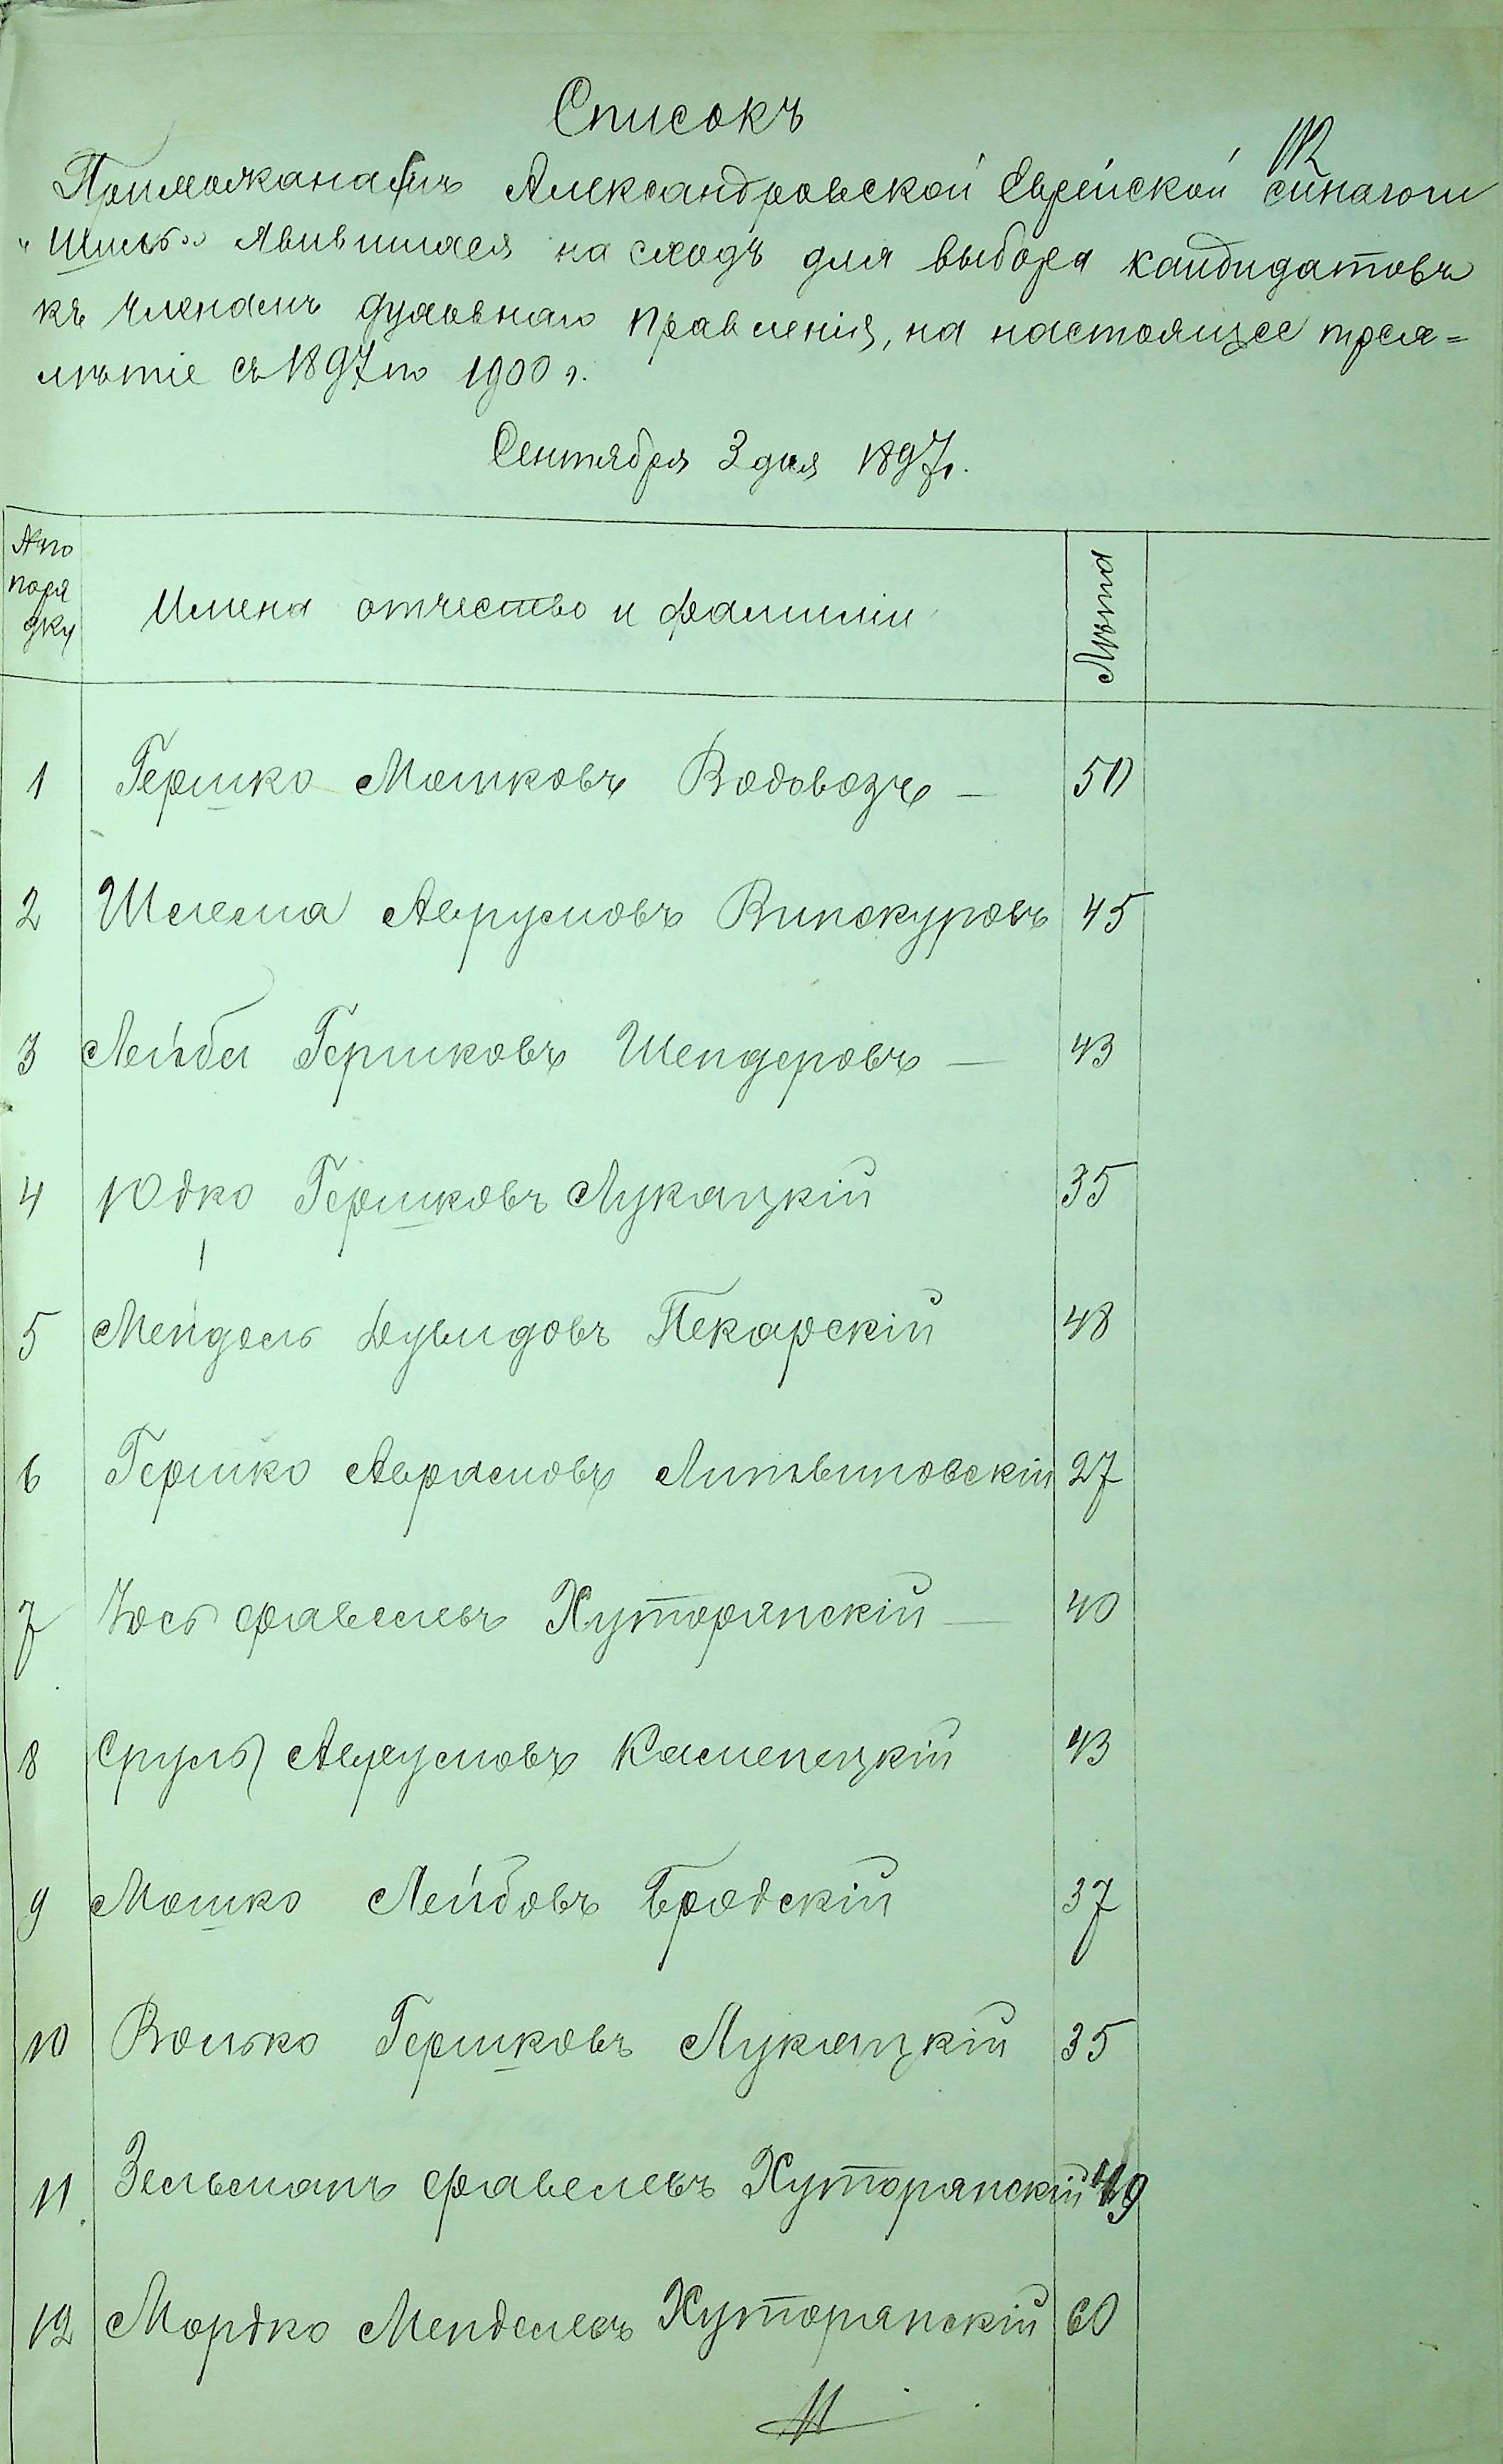 Списокъ
Прихожанамъ Александровской Еврейской синагоги
„Шиль" явившихся на сходъ для выбора кандидатовъ
къ членамъ духовнаго правленія, на настоящее трех=
лѣтіе съ 1897 по 1900 г.
Сентября 3 дня 1897 г.
№ по
поря
дку
Имена отчество и фамиліи
Лѣта
1 Гершко Мошковъ Водовозъ — 50
2 Шлема Аврумовъ Винокуровъ 45
3 Лейба Гершковъ Шендеровъ — 43
4 Юдко Гершковъ Лукацкій 35
5 Мендель Дувидовъ Пекарскій 48
6 Гершко Аврамовъ Литвиновскій 27
7 Іось Фавелевъ Хуторянскій — 40
8 Сруль Аврумовъ Каменецкій 43
9 Мошко Лейбовъ Бродскій 37
10 Волько Гершковъ Лукацкій 35
11 Зельманъ Фавелевъ Хуторянскій 49
12 Мордко Менделевъ Хуторянскій 60